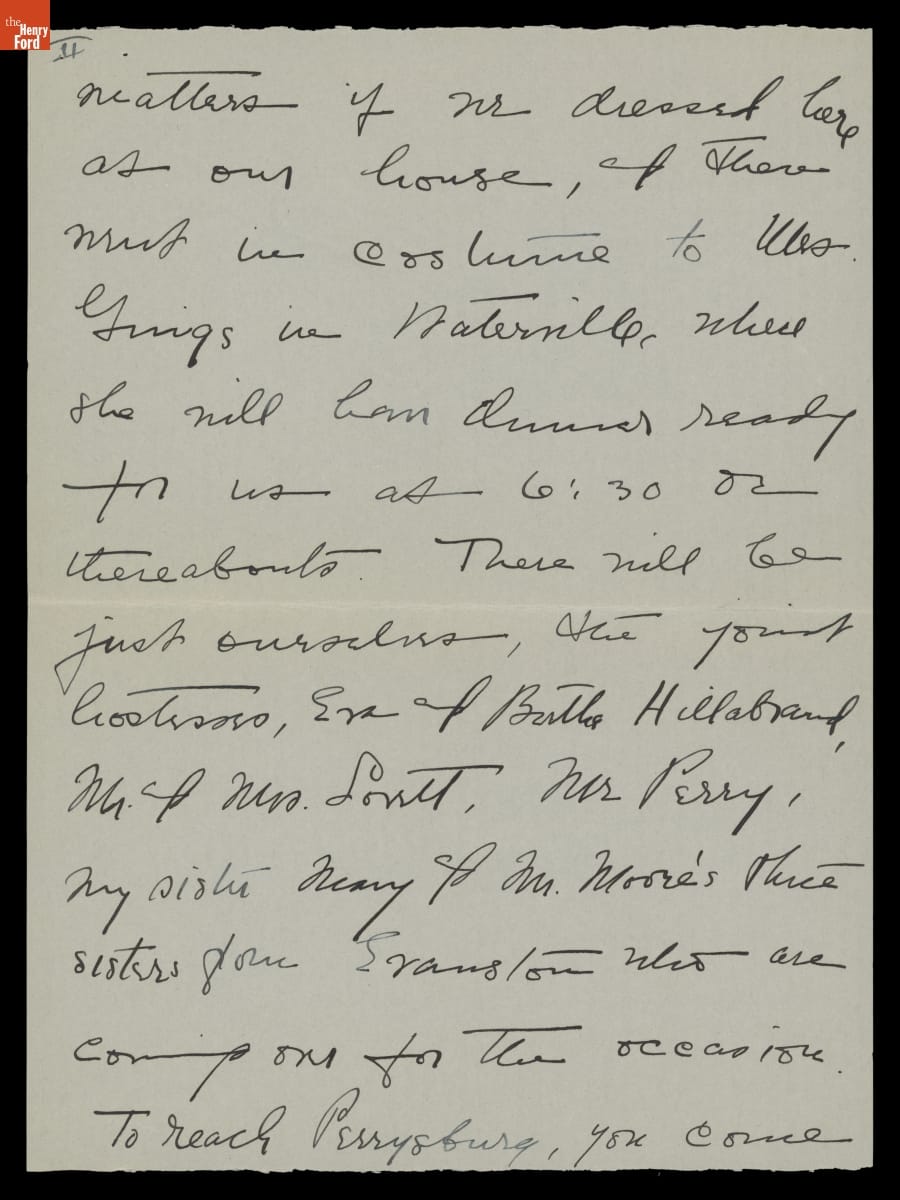 the
Henry
Ford
II
matters if we dressed here
at our house, & then
went in costume to Mrs.
Grings in Waterville, where
she will have dinner ready
for us at 6:30 or
thereabouts. There will be
just ourselves, the joint
hostesses, Eva & Bertha Hillabrand,
Mr. & Mrs. Lovett, Mr Perry,
my sister Mary & Mr. Moore's three
sisters from Evanston who are
coming on for the occasion.
To reach Perrysburg, you come